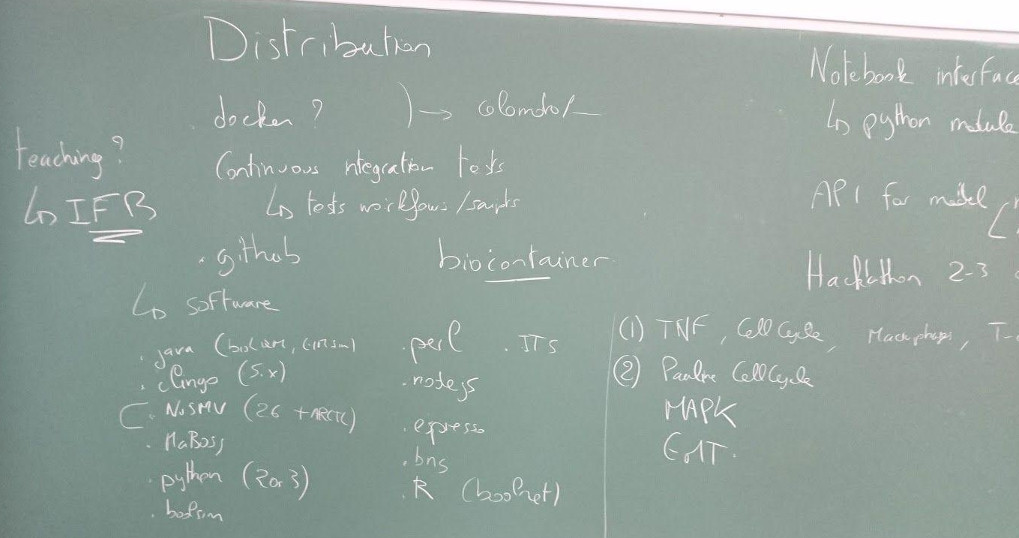 Distribution
docker ? ) → colomoto/
teaching ?
↳ IFB
Continuous ntegration tests
↳ tests workflows/scripts
. github
biocontainer
↳ software
. java (
. clingo (5.x)
. NuSMV (26 + ARCTL)
. MaBoss
. python (2 or 3)
. boolsim
. perl . ITS
. nodejs
. espresso
. bns
. R (boolnet)
Notebook interface
↳ python module
API for model
Hackathon 2-3
(1) TNF, Cell Cycle, Macrophages, T-
(2) Pauline Cell Cycle
MAPK
EMT.